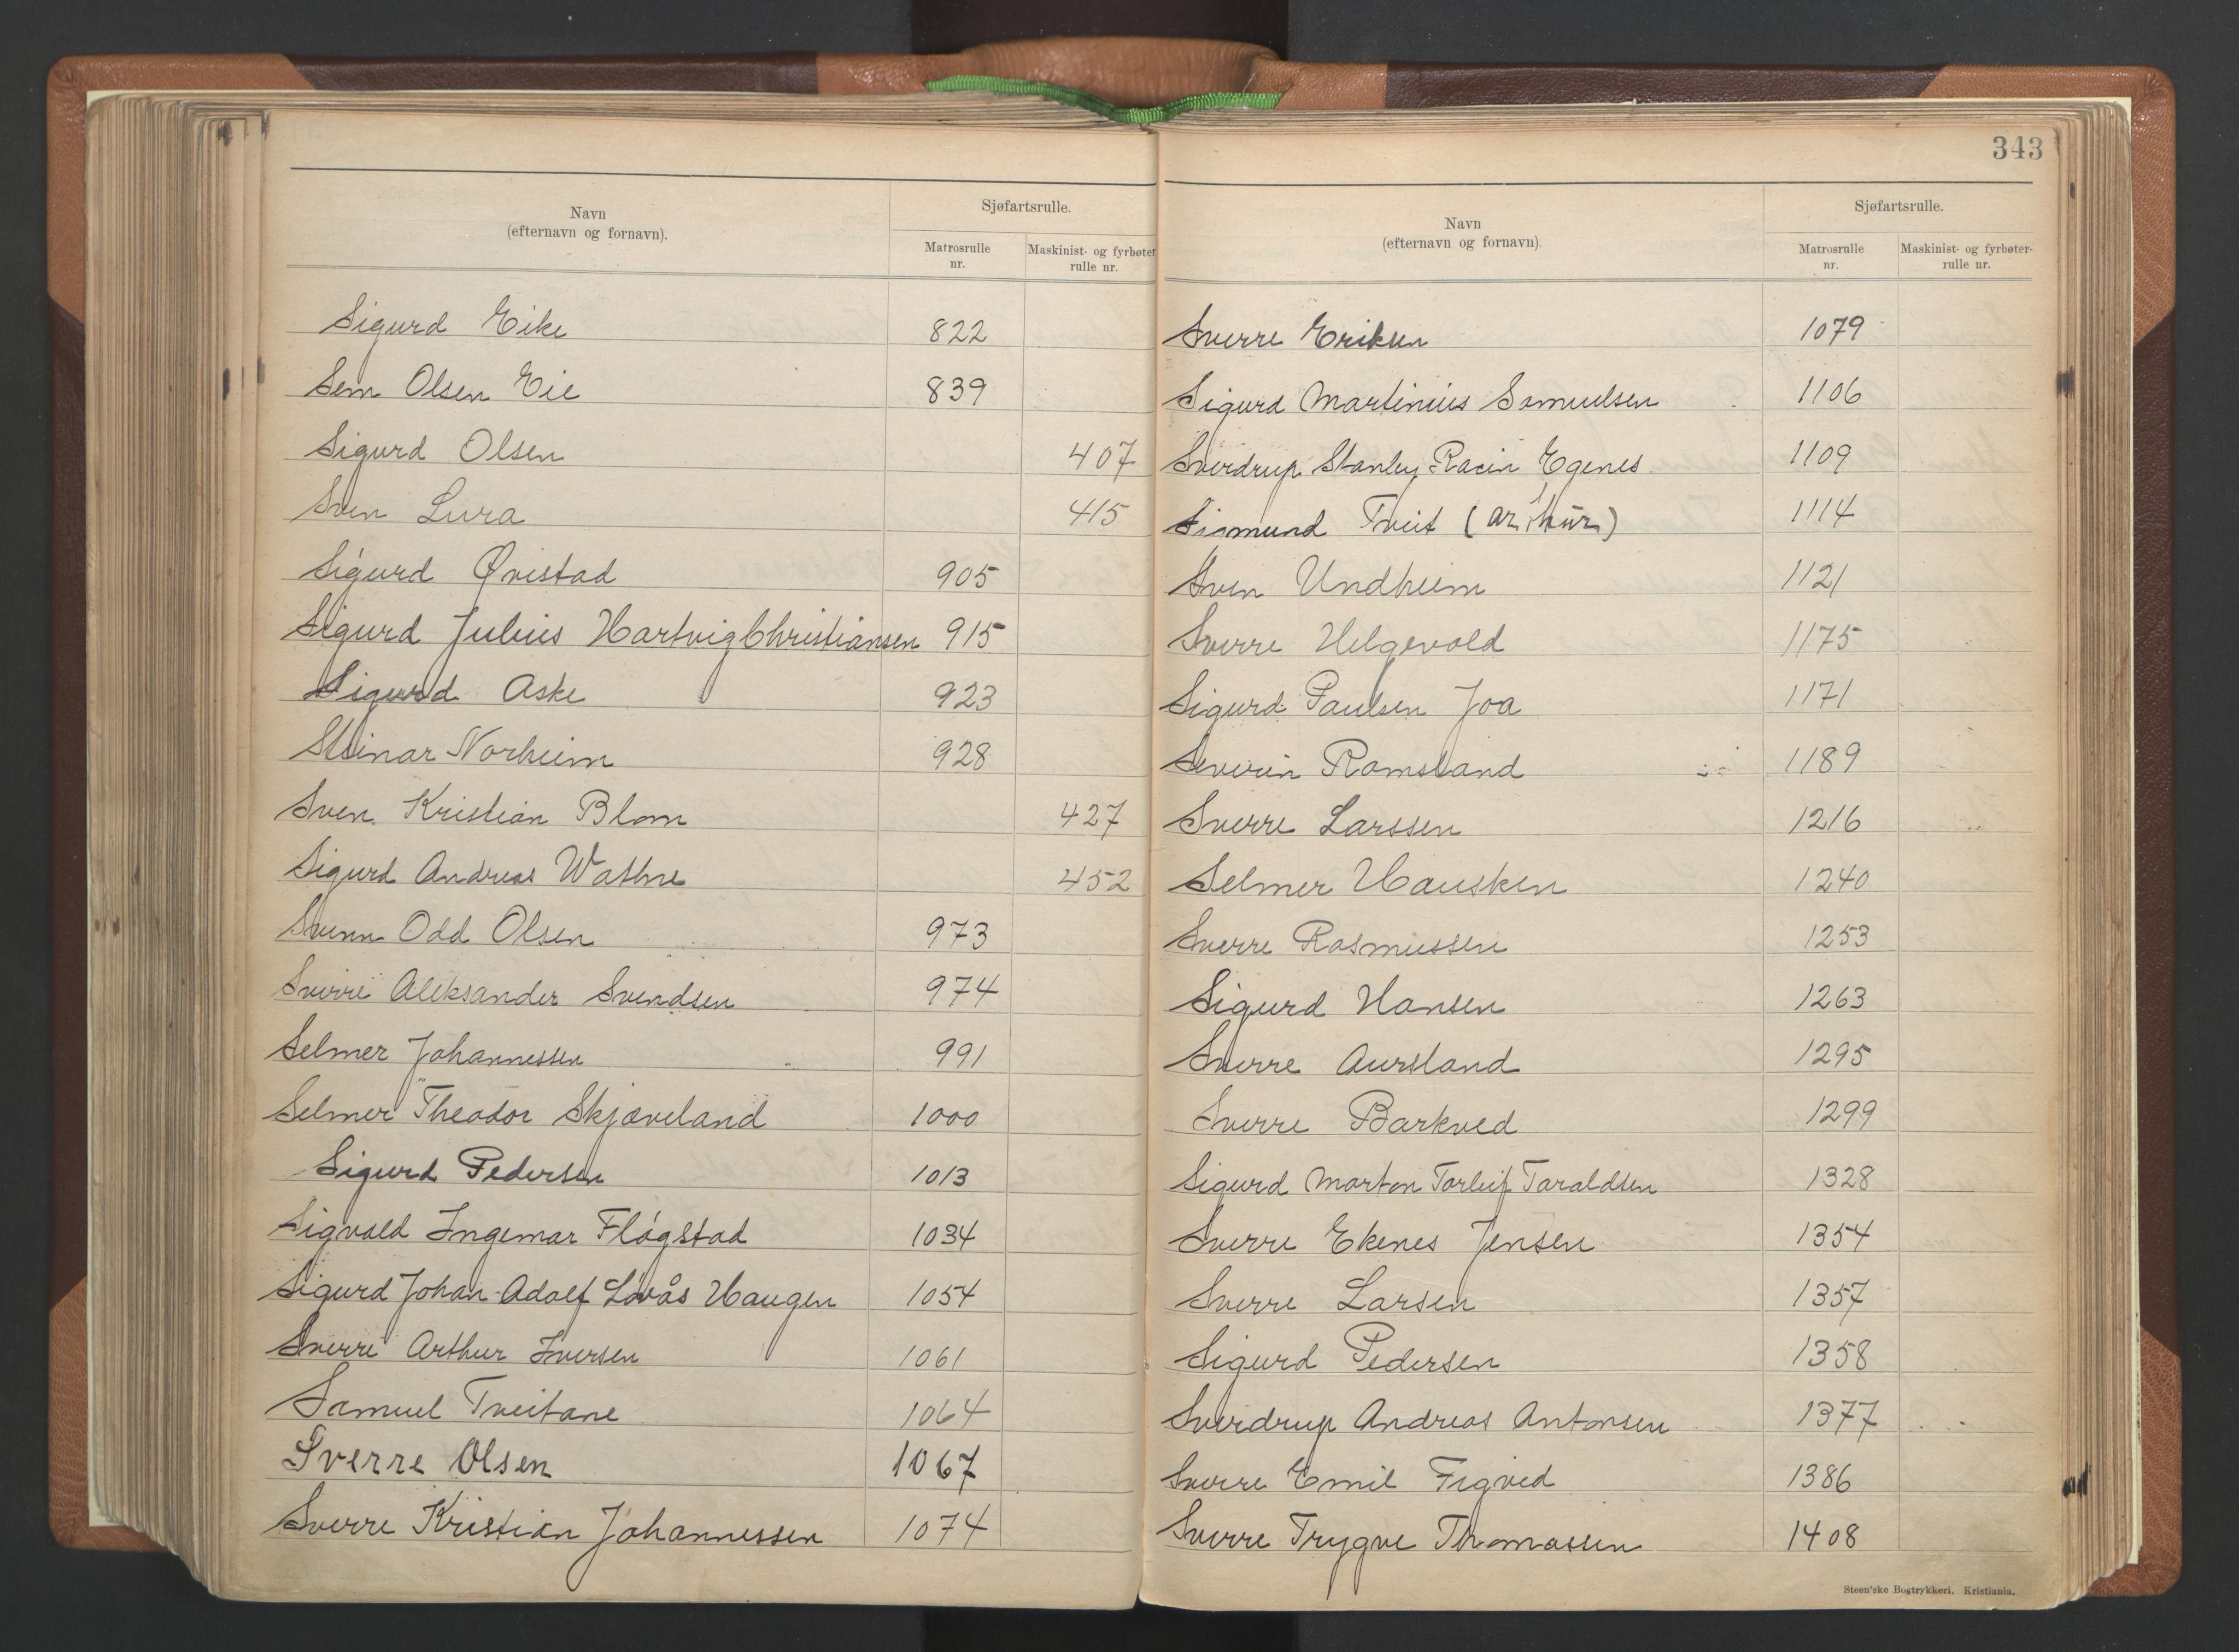 Navn
(efternavn og fornavn).
Sjøfartsrulle.
Matrosrulle
nr.
Maskinist- og fyrbøter
rulle nr.
Sigurd Eike 822
Sem Olsen Eie 839
Sigurd Olsen 407
Sven Lura 415
Sigurd Qvistad 905
Sigurd Julius Hartvig Christiansen 915
Sigurd Aske 923
Steinar Norheim 928
Sven Kristian Blom 427
Sigurd Andreas Wathne 452
Svenn Odd Olsen 973
Sverre Aleksander Svendsen 974
Selmer Johannessen 991
Selmer Theodor Skjæveland 1000
Sigurd Pedersen 1013
Sigvald Ingemar Fløgstad 1034
Sigurd Johan Adolf Løvås Haugen 1054
Sverre Arthur Iversen 1061
Samuel Tveitane 1064
Sverre Olsen 1067
Sverre Kristian Johannessen 1074
343
Navn
(efternavn og fornavn).
Sjøfartsrulle.
Matrosrulle
nr.
Maskinist- og fyrbøter-
rulle nr.
Sverre Eriksen 1079
Sigurd Martinius Samuelsen 1106
Sverdrup Stanley Racin Egenes 1109
Sigmund Tveit (Arthur) 1114
Sven Undheim 1121
Sverre Helgevold 1175
Sigurd Paulsen Joa 1171
Severin Ramsland 1189
Sverre Larssen 1216
Selmer Hausken 1240
Sverre Rasmussen 1253
Sigurd Hansen 1263
Sverre Aursland 1295
Sverre Barkved 1299
Sigurd Marton Torleif Taraldsen 1328
Sverre Ekenes Jensen 1354
Sverre Larsen 1357
Sigurd Pedersen 1358
Sverdrup Andreas Antonsen 1377
Sverre Emil Figved 1386
Sverre Trygve Thomassen 1408
Steen'ske Bogtrykkeri. Kristiania.